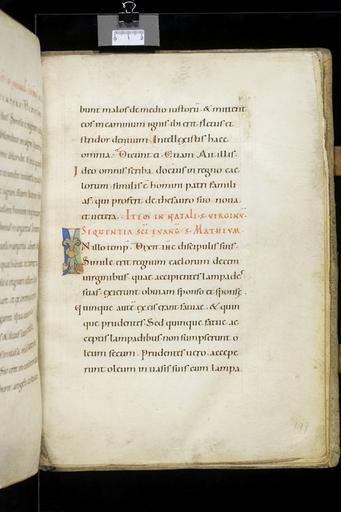 bunt malos de medio iustorū. & mittent
eos in caminum ignis ibi erit fletus et
stridor dentium. Intellexistis haec
omnia. Dicunt ei. Etiam. Ait illis.
Ideo omnis scriba doctus in regno cae
lorum. similis ē homini patri famili
as. qui profert de thesauro suo noua
et uetera. ITEM IN NATALI S VIRGINV̄.
SEQUENTIA SCI EVANG S MATHEVM.
IN illo temp. Dixit ihc discipulis suis.
Simile erit regnum caelorum decem
uirginibus. quae accipientes lampades
suas. exierunt obuiam sponso et sponsę.
quinque autē ex eis erant fatuae. & quin
que prudentes. Sed quinque fatuę ac
ceptis lampadibus non sumpserunt o
leum secum. Prudentes uero accepe
runt oleum in uasis suis cum lampa